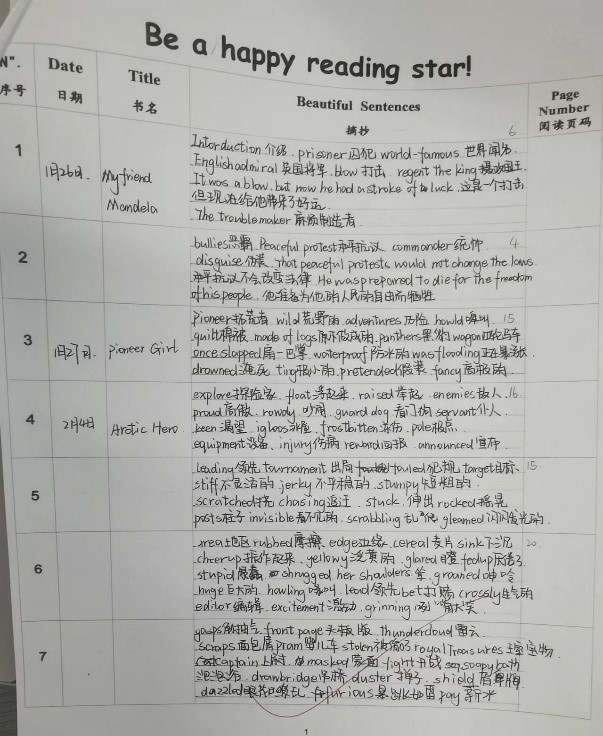 Be a happy reading star!
N°. Date Title Beautiful Sentences Page Number
序号 日期 书名 摘抄 阅读页码
1 1月26日. My friend Mandela
Intorduction 介绍. prisoner 囚犯 world-famous 世界闻名 6
English admiral 英国将军. Blow 打击. regent the king
It was a blow. but now he had a stroke of luck. 这是一个打击
但现在给他带来了好运.
The trouble maker 麻烦制造者
2
bullies 恶霸. Peaceful protest 和平抗议 commander 统帅. 4
disguise 伪装. That peaceful protests would not change the laws.
和平抗议不会改变法律. He was prepared to die for the freedom
of his people. 他准备为他的人民的自由而牺牲
3 1月27日. Pioneer Girl
Pioneer 拓荒者 wild 荒野的 adventures 历险 howld 嚎叫 15
quilt 棉被. made of logs 原木做成的. panthers 黑豹 wagon 四轮马车
once slapped 扇一巴掌. waterproof 防水的 was flooding 正在暴涨
drowned 淹死 tiny 很小的. pretended 假装. fancy 高雅的
4 2月4日 Arctic Hero.
explore 探险家. float 浮起来. raised 举起. enemies 敌人. 16.
proud 高傲. rowdy. 吵闹. guard dog 看门狗 servant 仆人.
keen 渴望. igloos 冰屋. frostbitten 冻伤. pole 极点.
equipment 设备. injury 伤病 reward 回报. announced 宣布
5
leading 领先 tournament 出局 fouled 犯规 target 目标. 15.
stiff 不灵活的 jerky 不平稳的. stumpy 短粗的.
scratched 挠 chasing 追逐. stuck. 伸出 rocked 摇晃
posts 柱子 invisible 看不见的. scrabbling gleamed 闪闪发光的.
6
area 地区 rubbed 摩擦. edge 边缘. cereal 麦片 sink 下沉 20
cheer up 振作起来. yellowy 泛黄的. glared 瞪 fed up 厌倦了
stupid 愚蠢. shrugged her shoulders 耸. groaned 呻吟
huge 巨大的. howling 嚎叫. lead 领先 bet 打赌. crossly 生气的
editor 编辑. excitement 激动. grinning 咧嘴大笑
7
front page 头版. thundercloud 雷云
scraps 面包屑 pram 婴儿车 stolen 被偷了 royal treasures 王室宝物.
captain 上尉. masked 蒙面 fight 打仗 soapy bath
泡泡浴. drawbridge 吊桥 duster 掸子. shield 盾牌
dazzled furious pay 薪水
1